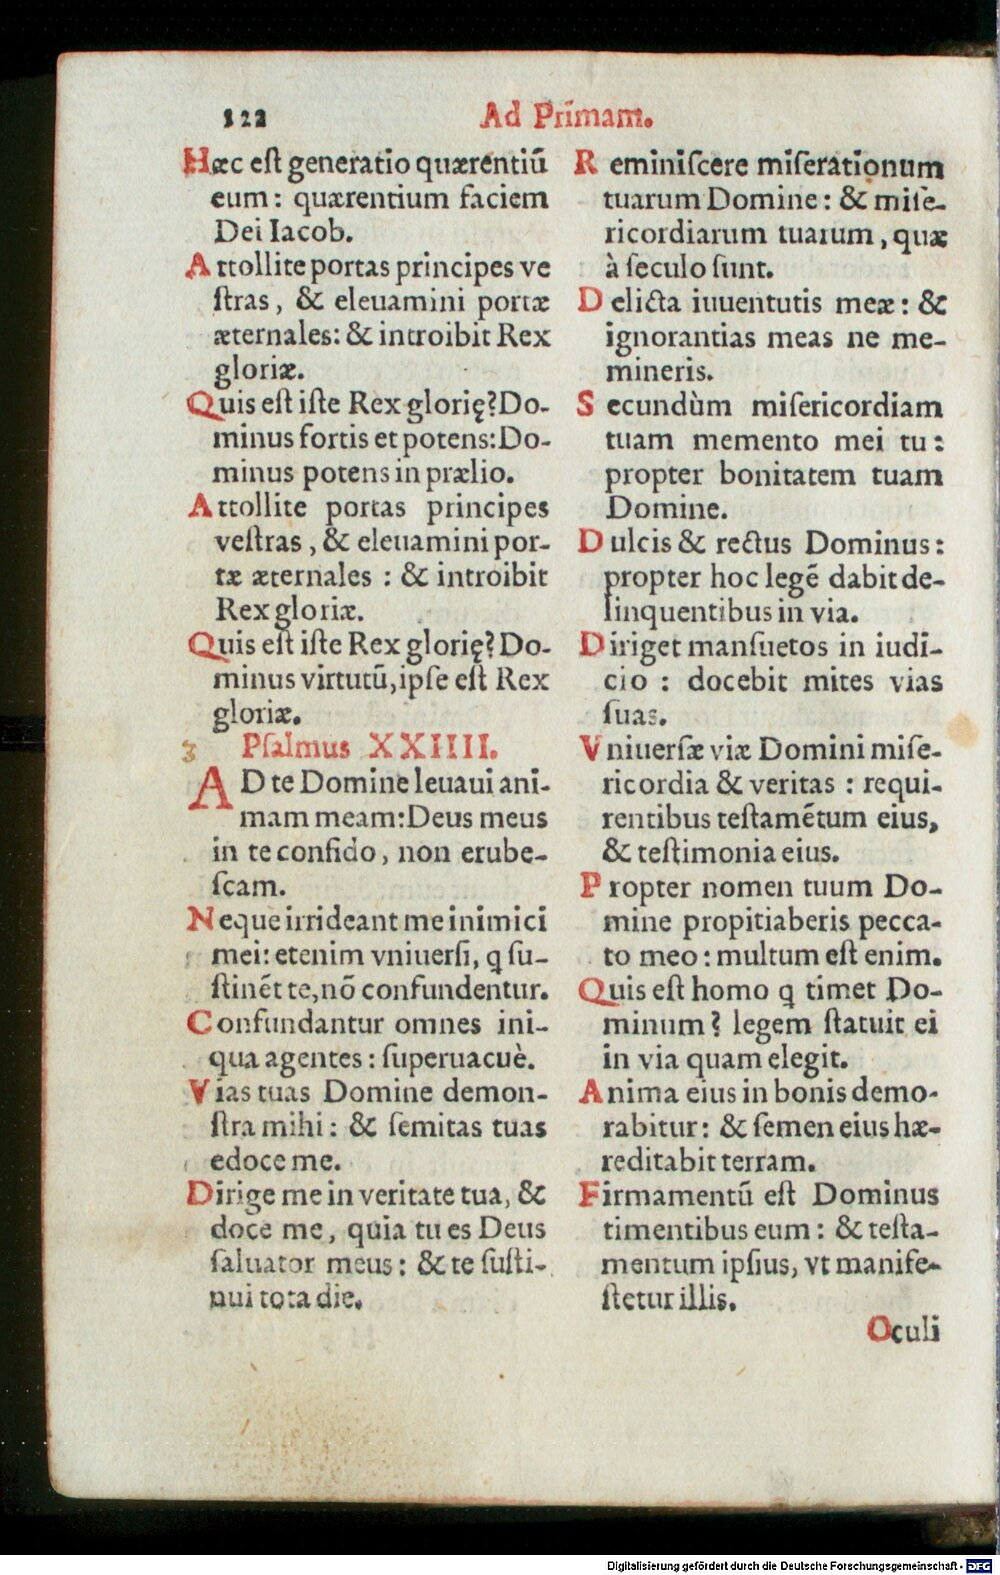 122
Ad Primam.
Hæc eſt generatio quærentiũ
eum: quærentium faciem
Dei Iacob.
Attollite portas principes ve
ſtras, & eleuamini portæ
æternales: & introibit Rex
gloriæ.
Quis eſt iſte Rex glorię? Do-
minus fortis et potens: Do-
minus potens in prælio.
Attollite portas principes
veſtras, & eleuamini por-
tæ æternales : & introibit
Rex gloriæ.
Quis eſt iſte Rex glorię? Do-
minus virtutũ, ipſe eſt Rex
gloriæ.
3 Pſalmus XXIIII.
AD te Domine leuaui ani-
mam meam: Deus meus
in te confido, non erube-
ſcam.
Neque irrideant me inimici
mei: etenim vniuerſi, q ſu-
ſtinẽt te, nõ confundentur.
Confundantur omnes ini-
qua agentes: ſuperuacuè.
Vias tuas Domine demon-
ſtra mihi: & ſemitas tuas
edoce me.
Dirige me in veritate tua, &
doce me, quia tu es Deus
ſaluator meus: & te ſuſti-
nui tota die.
Reminiſcere miſerationum
tuarum Domine: & miſe-
ricordiarum tuarum, quæ
à ſeculo ſunt.
Delicta iuuentutis meæ: &
ignorantias meas ne me-
mineris.
Secundùm miſericordiam
tuam memento mei tu:
propter bonitatem tuam
Domine.
Dulcis & rectus Dominus:
propter hoc legẽ dabit de-
linquentibus in via.
Diriget manſuetos in iudi-
cio : docebit mites vias
ſuas.
Vniuerſæ viæ Domini miſe-
ricordia & veritas : requi-
rentibus teſtamẽtum eius,
& teſtimonia eius.
Propter nomen tuum Do-
mine propitiaberis pecca-
to meo: multum eſt enim.
Quis eſt homo q timet Do-
minum? legem ſtatuit ei
in via quam elegit.
Anima eius in bonis demo-
rabitur: & ſemen eius hæ-
reditabit terram.
Firmamentũ eſt Dominus
timentibus eum: & teſta-
mentum ipſius, vt manife-
ſtetur illis.
Oculi
Digitalisierung gefördert durch die Deutsche Forschungsgemeinschaft - DFG